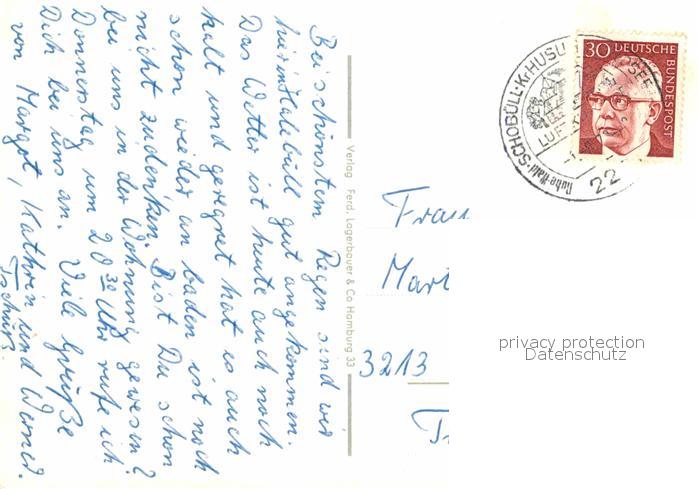 Bei schönstem Regen sind wir
hier in Halebüll gut angekommen.
Das Wetter ist heute auch noch
kalt und geregnet hat es auch
schon wieder an baden ist noch
nicht zu denken. Bist Du schon
bei uns in der Wohnung gewesen?
Donnerstag um 20 30 Uhr rufe ich
Dich bei uns an. Viele Grüße
von Margot, Kathrin und Werner.
Tschüß.
Verlag Ferd. Lagerbauer & Co Hamburg 33
30 DEUTSCHE BUNDESPOST
SCHOBÜLL · Kr HUSU
LUF
22
Frau
Mari
3213
privacy protection
Datenschutz